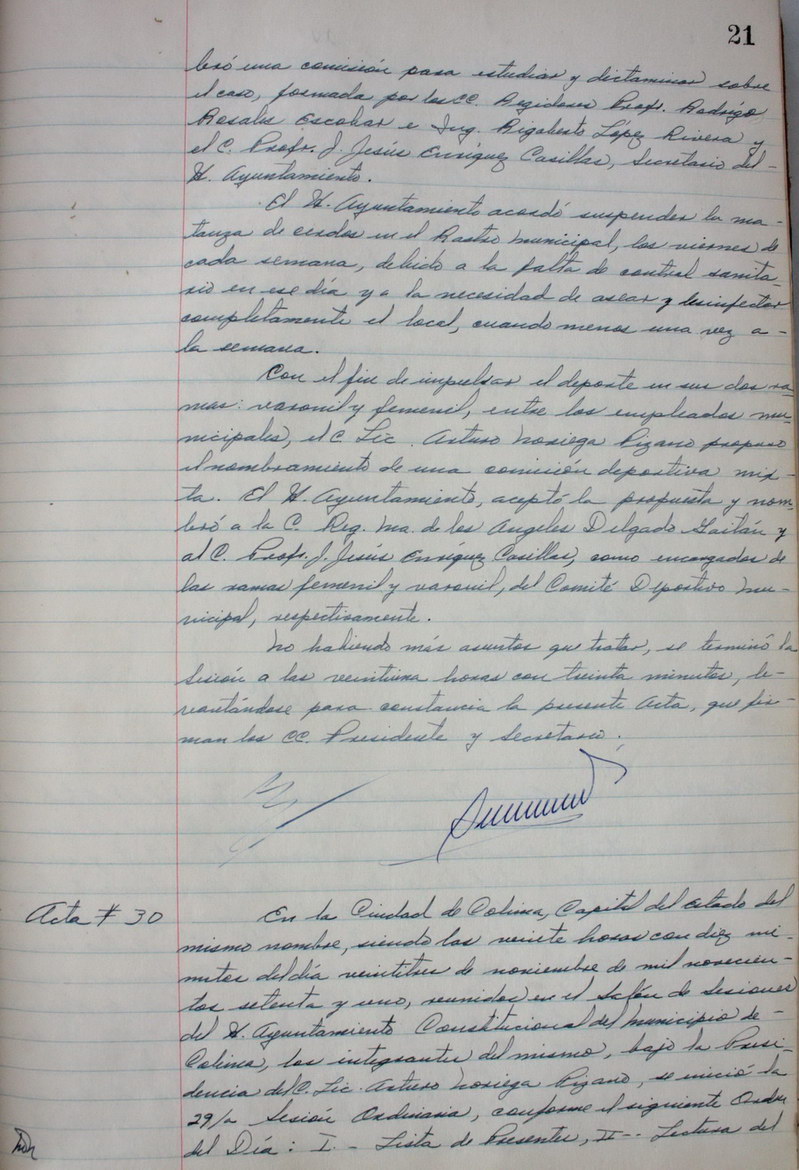 21
bró una comisión para estudiar y dictaminar sobre
el caso, formada por los CC. Regidores Profr. Rodrigo
Rosales Escobar e Ing. Rigoberto López Rivera y
el C. Profr. J. Jesús Enríquez Casillas, Secretario del-
H. Ayuntamiento.
El H. Ayuntamiento acordó suspender la ma-
tanza de cerdos en el Rastro Municipal, los viernes de
cada semana, debido a la falta de control sanita-
rio en ese día y a la necesidad de asear y desinfectar
completamente el local, cuando menos una vez a-
la semana.
Con el fin de impulsar el deporte en sus dos ra-
mas: varonil y femenil, entre los empleados mu-
nicipales, el C. Lic. Arturo Noriega Pizano propuso
el nombramiento de una comisión deportiva mix-
ta. El H. Ayuntamiento, aceptó la propuesta y nom-
bró a la C. Reg. Ma. de los Angeles Delgado Gaitán y
al C. Profr. J. Jesús Enríquez Casillas, como encargados de
las ramas femenil y varonil, del Comité Deportivo Mu-
nicipal, respectivamente.
No habiendo más asuntos que tratar, se terminó la
Sesión a las veintiuna horas con treinta minutos, le-
vantándose para constancia la presente Acta, que fir-
man los CC. Presidente y Secretario.
Acta # 30
En la Ciudad de Colima, Capital del estado del
mismo nombre, siendo las veinte horas con diez mi-
nutos del día veintitres de noviembre de mil novecien-
tos setenta y uno, reunidos en el Salón de Sesiones
del H. Ayuntamiento Constitucional del Municipio de-
Colima, los integrantes del mismo, bajo la Presi-
dencia del C. Lic. Arturo Noriega Pizano, se inició la
29/a Sesión Ordinaria, conforme el siguiente Orden
del Día: I.- Lista de Presentes, II-. Lectura del